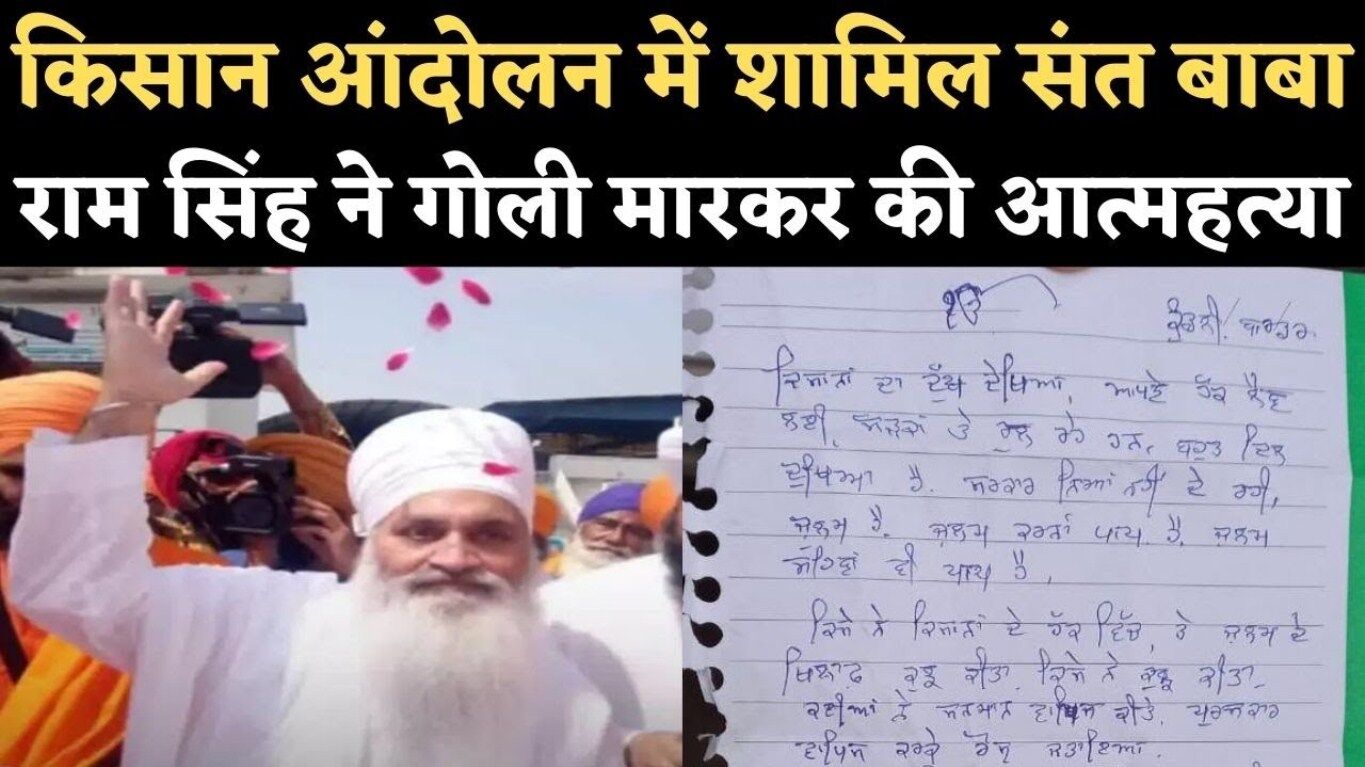 किसान आंदोलन में शामिल संत बाबा
राम सिंह ने गोली मारकर की आत्महत्या
ੴ
ਕੁੰਡਲੀ/ਬਾਰਡਰ
ਕਿਸਾਨਾਂ ਦਾ ਦੁੱਖ ਦੇਖਿਆ, ਆਪਣੇ ਹੱਕ ਲੈਣ
ਲਈ, ਸੜਕਾਂ ਤੇ ਰੁਲ ਰਹੇ ਹਨ, ਬਹੁਤ ਦਿਲ
ਦੁਖਿਆ ਹੈ. ਸਰਕਾਰ ਨਿਆਂ ਨਹੀਂ ਦੇ ਰਹੀ,
ਜੁਲਮ ਹੈ. ਜੁਲਮ ਕਰਨਾ ਪਾਪ ਹੈ. ਜੁਲਮ
ਸਹਿਣਾ ਵੀ ਪਾਪ ਹੈ,
ਕਿਸੇ ਨੇ ਕਿਸਾਨਾਂ ਦੇ ਹੱਕ ਵਿੱਚ, ਤੇ ਜੁਲਮ ਦੇ
ਖਿਲਾਫ ਕੁਝ ਕੀਤਾ, ਕਿਸੇ ਨੇ ਕੁਝ ਕੀਤਾ.
ਕਈਆਂ ਨੇ ਸਨਮਾਨ ਵਾਪਿਸ ਕੀਤੇ, ਪੁਰਸਕਾਰ
ਵਾਪਿਸ ਕਰਕੇ ਰੋਸ ਜਤਾਇਆ.